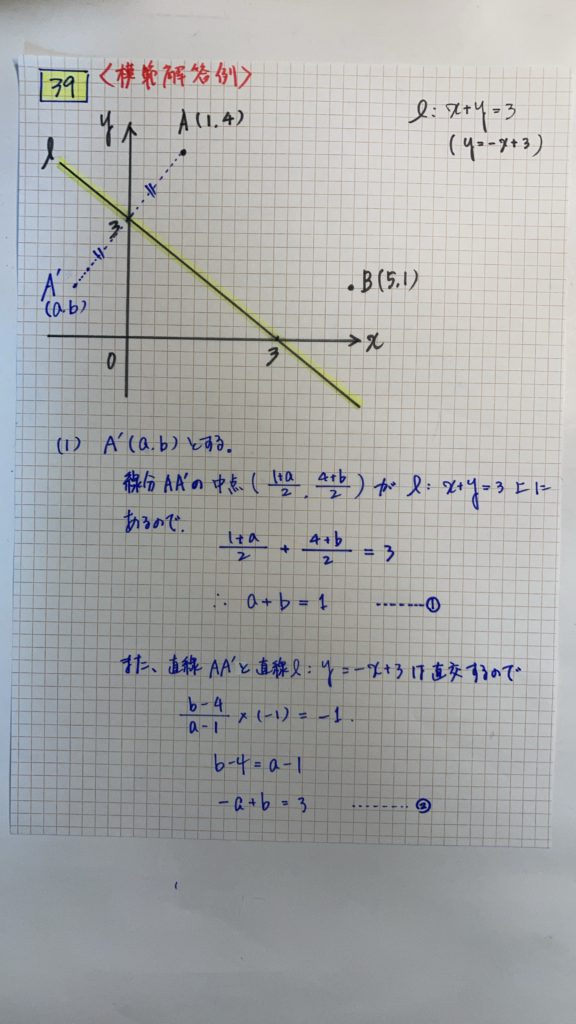 39 〈模範解答例〉
l: x+y=3
(y=-x+3)
y
A(1,4)
l
3
A'
(a,b)
B(5,1)
x
0
3
(1) A'(a,b)とする。
線分AA'の中点(1+a/2, 4+b/2)がl: x+y=3上に
あるので、
1+a/2 + 4+b/2 = 3
∴ a+b=1 ……①
また、直線AA'と直線l: y=-x+3は直交するので
b-4/a-1 ×(-1)=-1.
b-4=a-1
-a+b=3 ……②